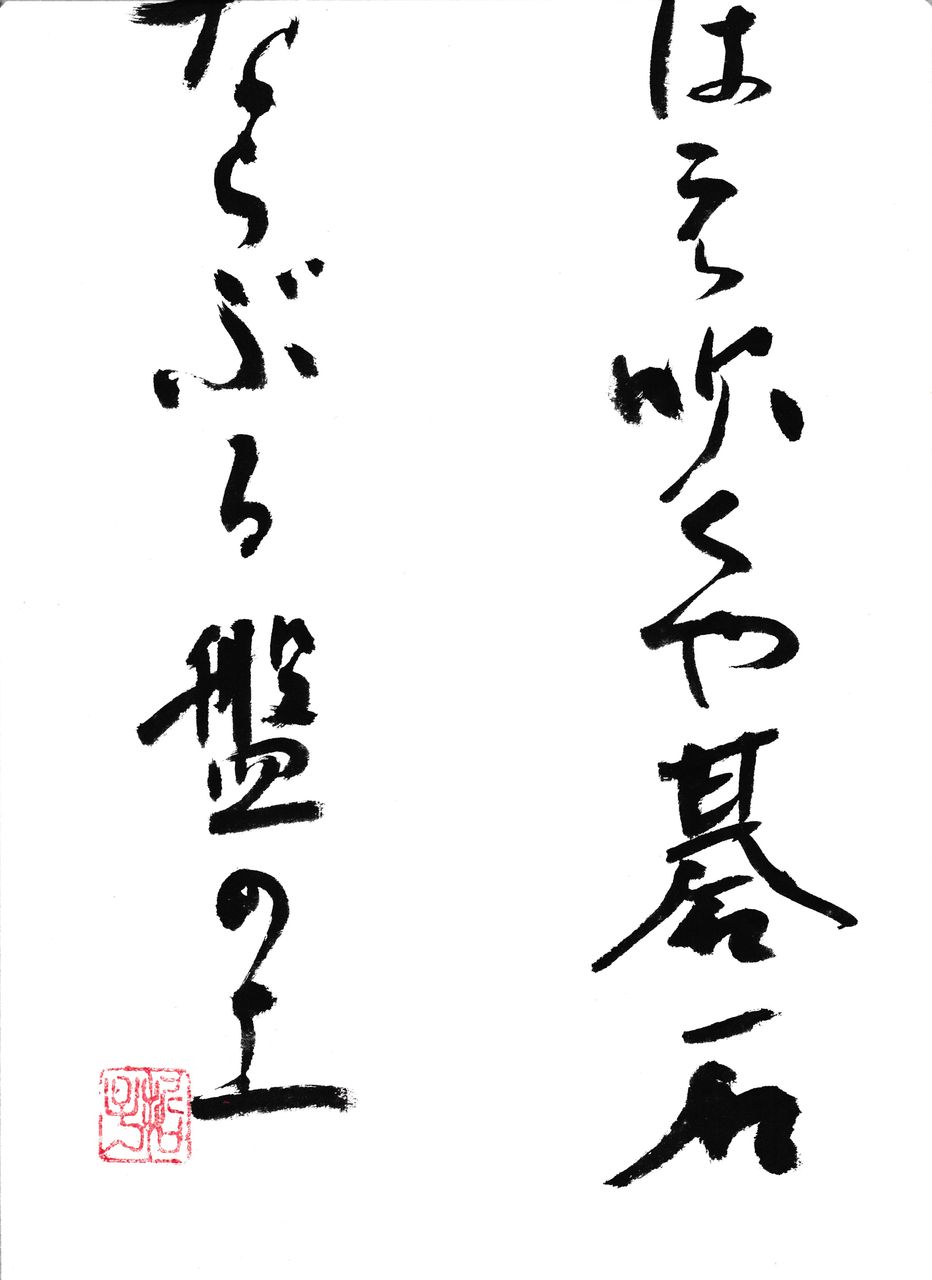 はえ吹くや碁石
ならぶる盤の上